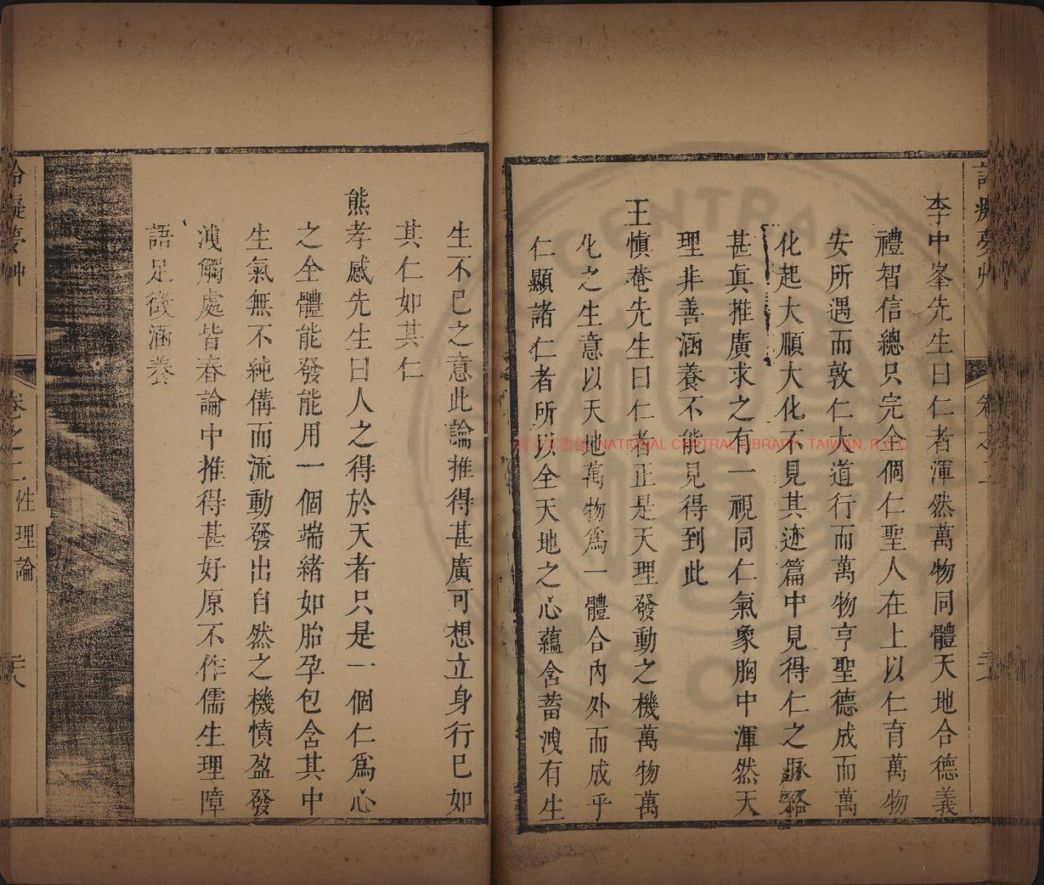 李中峯先生曰仁者渾然萬物同體天地合德義
禮智信總只完全個仁聖人在上以仁育萬物
安所遇而敦仁大道行而萬物亨聖德成而萬
化起大順大化不見其迹篇中見得仁之脉絡
甚真推廣求之有一視同仁氣象胸中渾然天
理非善涵養不能見得到此
王慎菴先生曰仁者正是天理發動之機萬物萬
化之生意以天地萬物爲一體合內外而成乎
仁顯諸仁者所以全天地之心蘊含蓄洩有生
生不已之意此論推得甚廣可想立身行已如
其仁如其仁
熊孝感先生曰人之得於天者只是一個仁爲心
之全體能發能用一個端緒如胎孕包含其中
生氣無不純備而流動發出自然之機憤盈發
洩觸處皆春論中推得甚好原不作儒生理障
語足徵涵養
卷之二 性理論
NATIONAL CENTRAL LIBRARY, TAIWAN, R.O.C